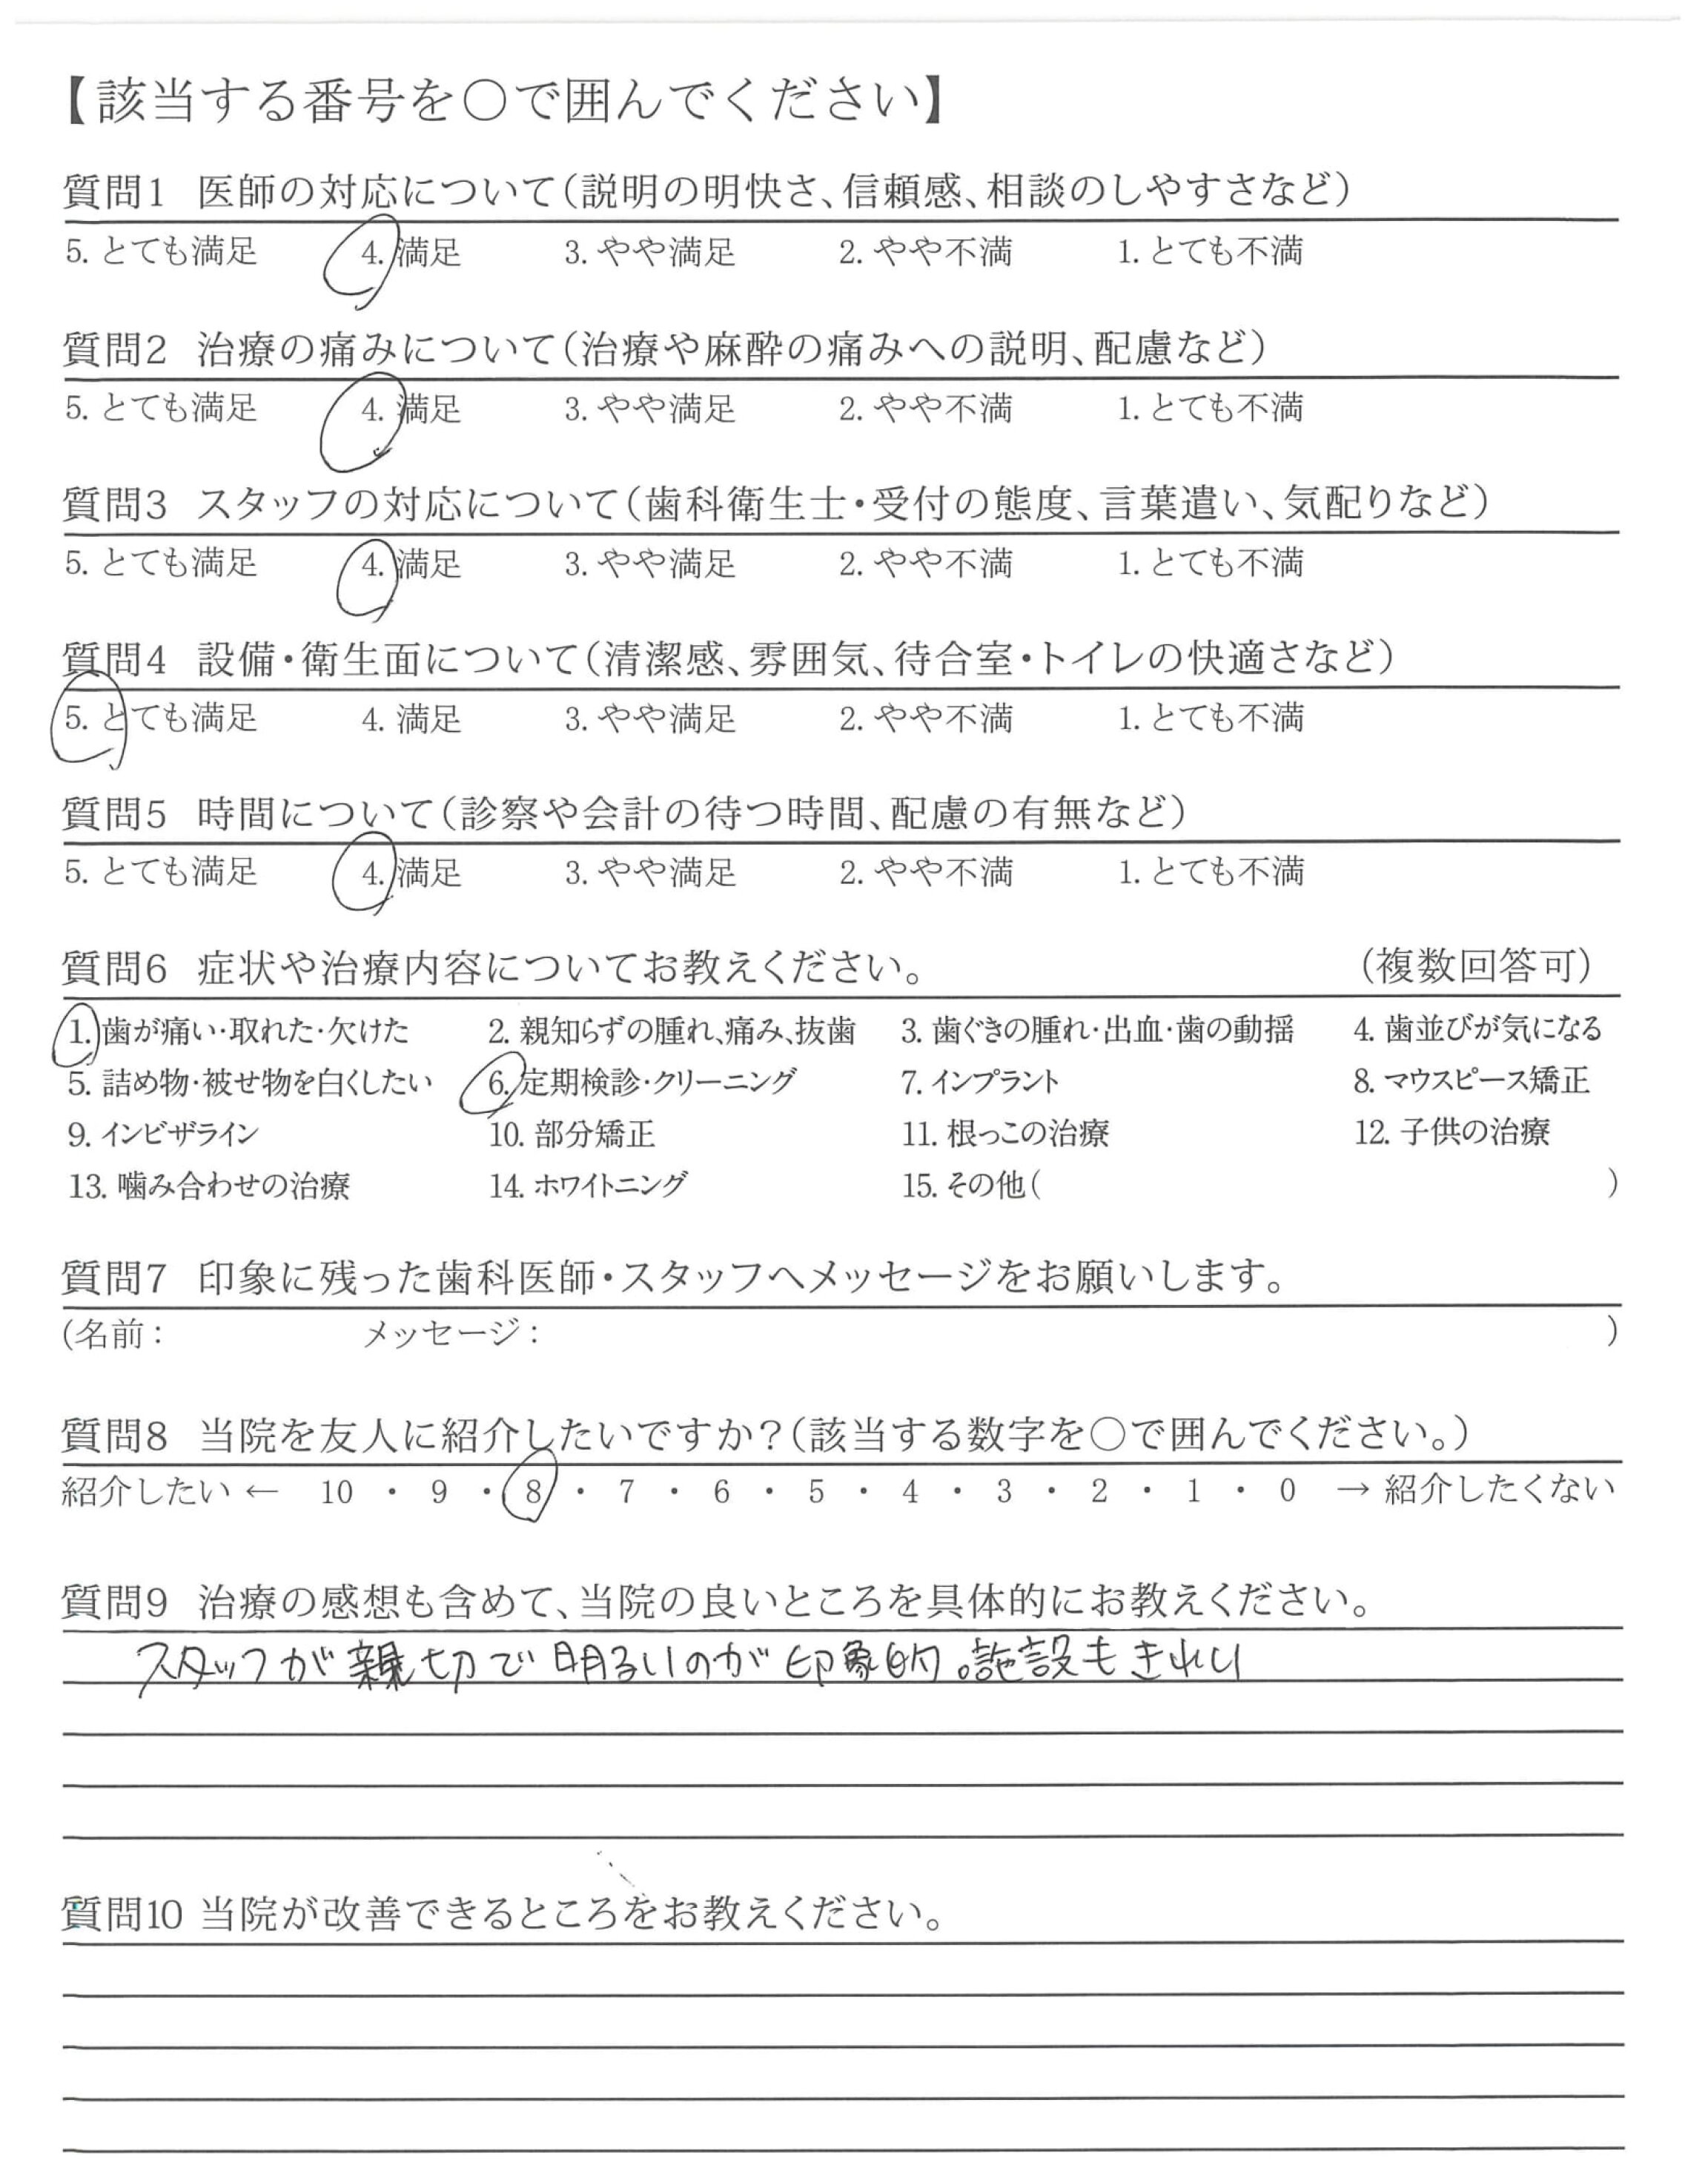 【該当する番号を○で囲んでください】
質問1 医師の対応について(説明の明快さ、信頼感、相談のしやすさなど)
5. とても満足 4. 満足 3. やや満足 2. やや不満 1. とても不満
質問2 治療の痛みについて(治療や麻酔の痛みへの説明、配慮など)
5. とても満足 4. 満足 3. やや満足 2. やや不満 1. とても不満
質問3 スタッフの対応について(歯科衛生士・受付の態度、言葉遣い、気配りなど)
5. とても満足 4. 満足 3. やや満足 2. やや不満 1. とても不満
質問4 設備・衛生面について(清潔感、雰囲気、待合室・トイレの快適さなど)
5. とても満足 4. 満足 3. やや満足 2. やや不満 1. とても不満
質問5 時間について(診察や会計の待つ時間、配慮の有無など)
5. とても満足 4. 満足 3. やや満足 2. やや不満 1. とても不満
質問6 症状や治療内容についてお教えください。 (複数回答可)
1. 歯が痛い・取れた・欠けた 2. 親知らずの腫れ、痛み、抜歯 3. 歯ぐきの腫れ・出血・歯の動揺 4. 歯並びが気になる
5. 詰め物・被せ物を白くしたい 6. 定期検診・クリーニング 7. インプラント 8. マウスピース矯正
9. インビザライン 10. 部分矯正 11. 根っこの治療 12. 子供の治療
13. 噛み合わせの治療 14. ホワイトニング 15. その他( )
質問7 印象に残った歯科医師・スタッフへメッセージをお願いします。
(名前: メッセージ: )
質問8 当院を友人に紹介したいですか?(該当する数字を○で囲んでください。)
紹介したい ← 10 ・ 9 ・ 8 ・ 7 ・ 6 ・ 5 ・ 4 ・ 3 ・ 2 ・ 1 ・ 0 → 紹介したくない
質問9 治療の感想も含めて、当院の良いところを具体的にお教えください。
スタッフが親切で明るいのが印象的。施設もきれい
質問10 当院が改善できるところをお教えください。